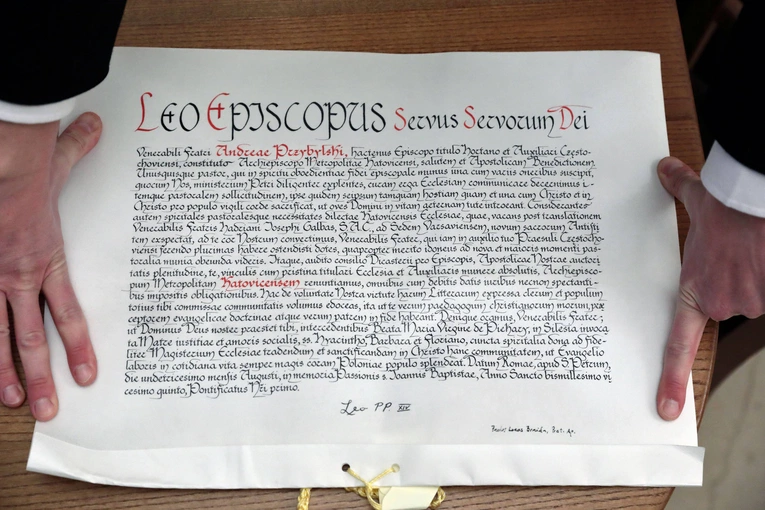 Leo Episcopus Servus Servorum Dei
Venerabili Fratri Andreae Przybylski, hactenus Episcopo titulo Hortano et Auxiliari Często-
choviensi, constituto Archiepiscopo Metropolitae Katovicensi, salutem et Apostolicam Benedictionem.
Unusquisque pastor, qui in spiritu oboedientiae fidei episcopale munus una cum variis oneribus suscipit,
quocum Nos, ministerium Petri diligenter explentes, curam erga Ecclesiam communicare decernimus i-
temque pastoralem sollicitudinem, ipse quidem seipsum tamquam hostiam quam et una cum Christo et in
Christo pro populo vigili corde sacrificat, ut oves Domini in vitam aeternam tute introeant. Considerantes
autem spiritales pastoralesque necessitates dilectae Katovicensis Ecclesiae, quae, vacans post translationem
Venerabilis Fratris Hadriani Josephi Galbas, S.A.C., ad Sedem Varsaviensem, novum sacrorum Antisti-
tem exspectat, ad te cor Nostrum convertimus, Venerabilis Frater, qui iam in auxilio tuo Praesuli Częstocho-
viensi ferendo plurimas habere ostendisti dotes, quapropter inserto idoneus ad nova et maioris momenti pas-
toralia munia obeunda videris. Itaque, audito consilio Dicasterii pro Episcopis, Apostolicae Nostrae auctori
tatis plenitudine, te, vinculis cum pristina titulari Ecclesia et Auxiliaris munere absolutis, Archiepisco-
pum Metropolitam Katovicensem renuntiamus, omnibus cum debitis datis iuribus necnon spectanti-
bus impositis obligationibus. Hac de voluntate Nostra virtute harum Litterarum expressa clerum et populum
totius tibi commissae communitatis volumus edoceas, ita ut te verum paedagogum christianorum morum, prae
ceptorem evangelicae doctrinae atque verum patrem in fide habeant. Denique orginus, Venerabilis Frater,
ut Dominus Deus noster praestet tibi, intercedentibus Beata Maria Virgine de Piekary, in Silesia invoca
ta Matre iustitiae et amoris socialis, ss. Hyacintho, Barbara et Floriano, cuncta spiritalia dona ad fide-
liter Magisterium Ecclesiae tradendum et sanctificandam in Christo hanc communitatem, ut Evangelio
laboris in cotidiana vita semper magis coram Poloniae populo splendeat. Datum Romae, apud S. Petrum,
die undetricesimo mensis Augusti, in memoria Passionis s. Joannis Baptistae, Anno Sancto bismillesimo vi
cesimo quinto, Pontificatus Nri primo.
Leo PP. XIV